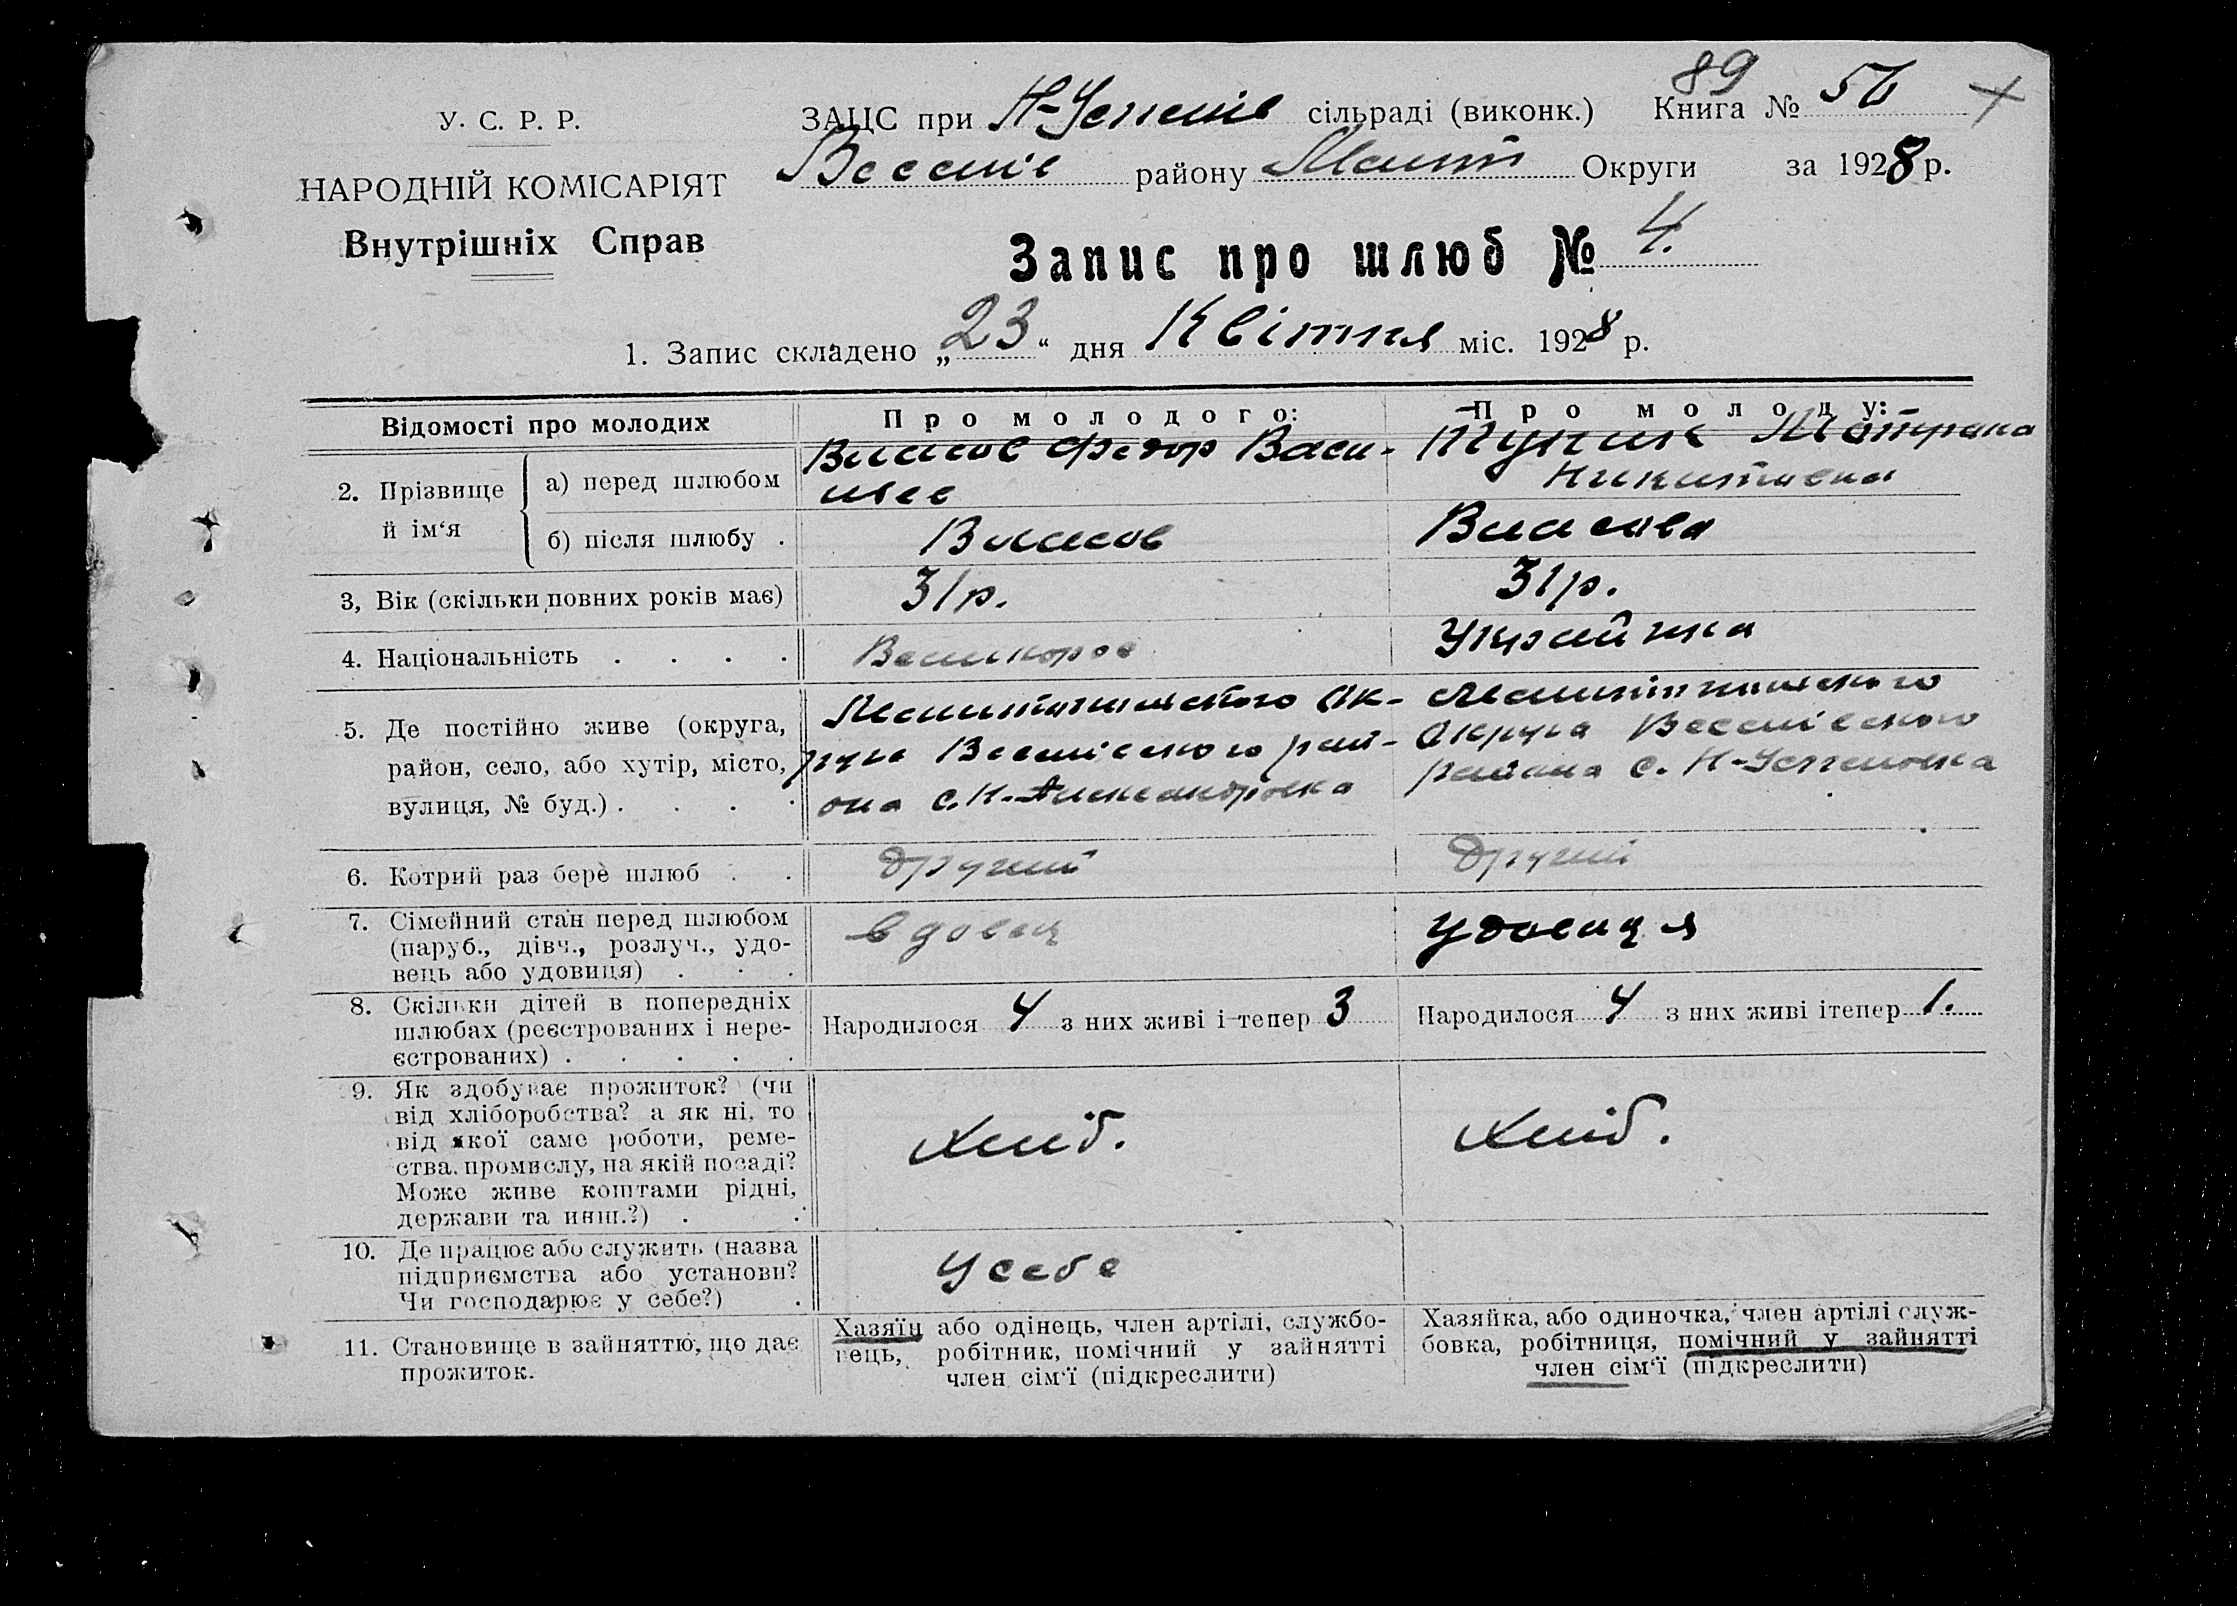 89
У. С. Р. Р.
ЗАЦС при Н-Успенів сільраді (виконк.) Книга № 56
НАРОДНІЙ КОМІСАРІЯТ
Весел'в району Меліт Округи за 1928 р.
Внутрішніх Справ
Запис про шлюб № 4.
1. Запис складено „23“ дня Квітня міс. 1928 р.
Відомості про молодих
Про молодого:
Про молоду:
2. Прізвище й ім‘я
а) перед шлюбом
Власов Федор Васильев
Тупик Мотрона
Никитовна
б) після шлюбу .
Власов
Власова
3, Вік (скільки повних років має)
31 р.
31 р.
4. Національність . . . .
Великорос
Украйинка
5. Де постійно живе (округа,
район, село, або хутір, місто,
вулиця, № буд.) . . . .
Мелитопольского Ок-
руга Веселівського рай-
она с. Н-Александровка
Мелитопольського
Округа Веселівського
района с. Н-Успеновка
6. Котрий раз бере шлюб . .
другий
Другий
7. Сімейний стан перед шлюбом
(паруб., дівч., розлуч., удо-
вець або удовиця) . . .
вдовец
удовиця
8. Скільки дітей в попередніх
шлюбах (реєстрованих і нере-
єстрованих) . . . . .
Народилося 4 з них живі і тепер 3
Народилося 4 з них живі ітепер 1.
9. Як здобуває прожиток? (чи
від хліборобства? а як ні, то
від якої саме роботи, реме-
ства, промислу, на якій посаді?
Може живе коштами рідні,
держави та инш.?) . .
Хліб.
Хліб.
10. Де працює або служить (назва
підприємства або установи?
Чи господарює у себе?) .
У себе
11. Становище в зайняттю, що дає
прожиток.
Хазяїн або одінець, член артілі, службо-
вець, робітник, помічний у зайнятті
член сім‘ї (підкреслити)
Хазяйка, або одиночка, член артілі служ-
бовка, робітниця, помічний у зайнятті
член сім‘ї (підкреслити)